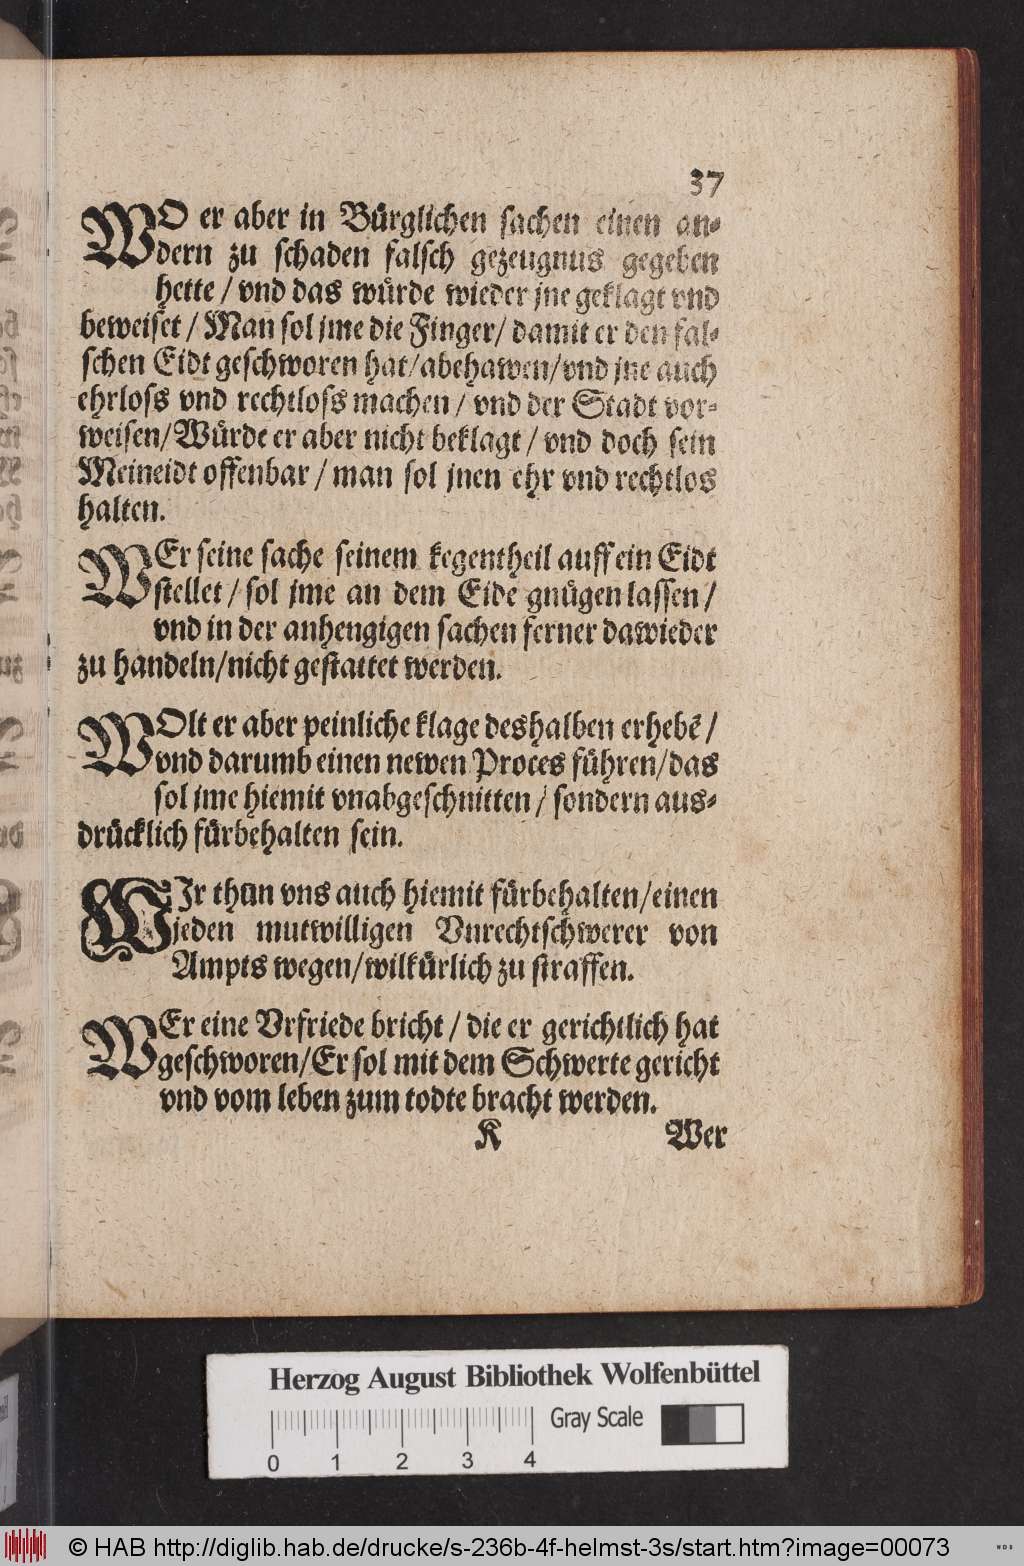 37
WO er aber in Bürglichen sachen einen an⸗
dern zu schaden falsch gezeugnus gegeben
hette / vnd das würde wieder jne geklagt vnd
beweiset / Man sol jme die Finger / damit er den fal⸗
schen Eidt geschworen hat / abehawen / vnd jne auch
ehrloss vnd rechtloss machen / vnd der Stadt vor⸗
weisen / Würde er aber nicht beklagt / vnd doch sein
Meineidt offenbar / man sol jnen ehr vnd rechtlos
halten.
WEr seine sache seinem kegentheil auff ein Eidt
stellet / sol jme an dem Eide gnügen lassen /
vnd in der anhengigen sachen ferner dawieder
zu handeln / nicht gestattet werden.
WOlt er aber peinliche klage deshalben erhebē /
vnd darumb einen newen Proces führen / das
sol jme hiemit vnabgeschnitten / sondern aus⸗
drücklich fürbehalten sein.
WIr thun vns auch hiemit fürbehalten / einen
jeden mutwilligen Vnrechtschwerer von
Ampts wegen / wilkürlich zu straffen.
WEr eine Vrfriede bricht / die er gerichtlich hat
geschworen / Er sol mit dem Schwerte gericht
vnd vom leben zum todte bracht werden.
K Wer
Herzog August Bibliothek Wolfenbüttel
Gray Scale
0 1 2 3 4
© HAB http://diglib.hab.de/drucke/s-236b-4f-helmst-3s/start.htm?image=00073